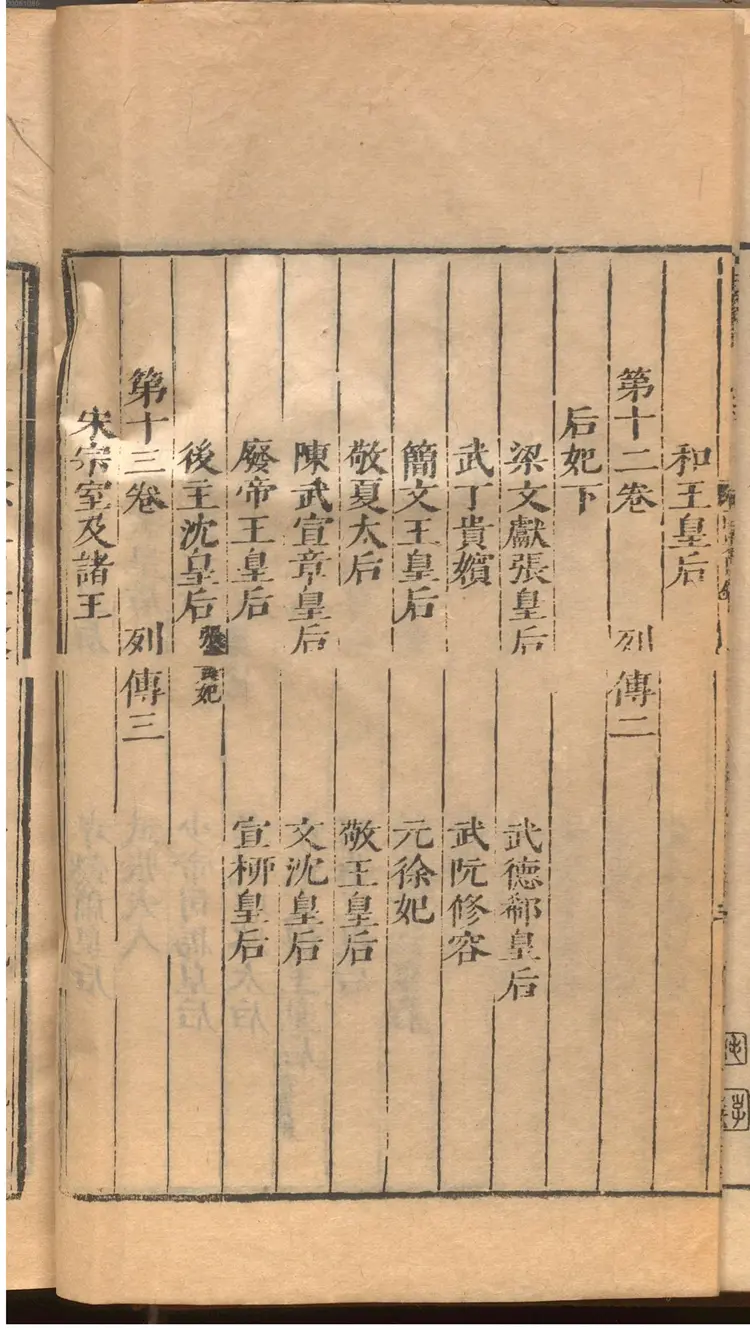 和王皇后
第十二卷 列傳二
后妃下
梁文獻張皇后 武德郗皇后
武丁貴嬪 武阮修容
簡文王皇后 元徐妃
敬夏太后 敬王皇后
陳武宣章皇后 文沈皇后
廢帝王皇后 宣柳皇后
後主沈皇后 張貴妃
第十三卷 列傳三
宋宗室及諸王